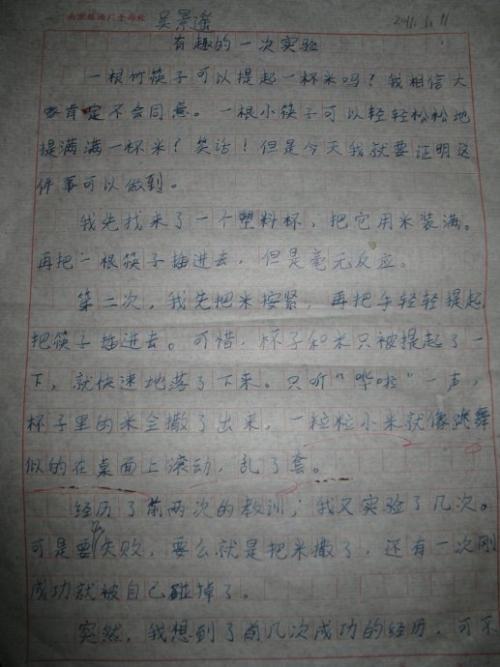 吴景遥
2011.1.11
有趣的一次实验
一根竹筷子可以提起一杯米吗？我相信大
家肯定不会同意。一根小筷子可以轻轻松松地
提满满一杯米？笑话！但是今天我就要证明这
件事可以做到。
我先找来了一个塑料杯，把它用米装满。
再把一根筷子插进去，但是毫无反应。
第二次，我先把米按紧，再把手轻轻提起，
把筷子插进去。可惜，杯子和米只被提起了一
下，就快速地落了下来。只听“哗啦”一声，
杯子里的米全撒了出来，一粒粒小米就像跳舞
似的在桌面上滚动，乱了套。
经历了前两次的教训，我又实验了几次。
可是要么失败，要么就是把米撒了，还有一次刚
成功就被自己碰掉了。
突然，我想到了前几次成功的经历，可不